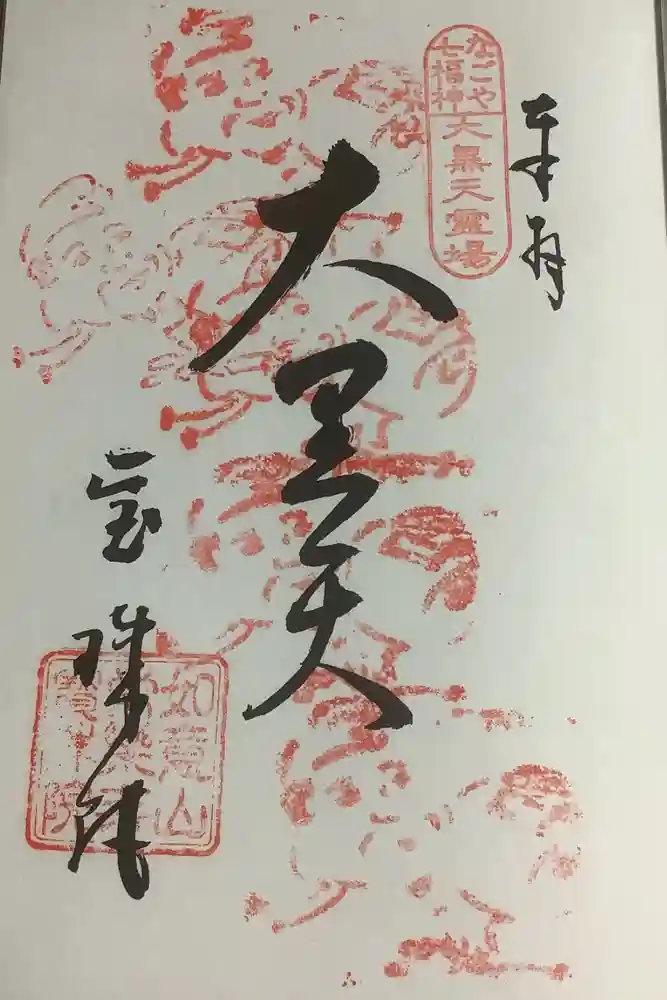 奉拝
なごや
七福神
大黒天霊場
大黒天
宝珠院
如意山